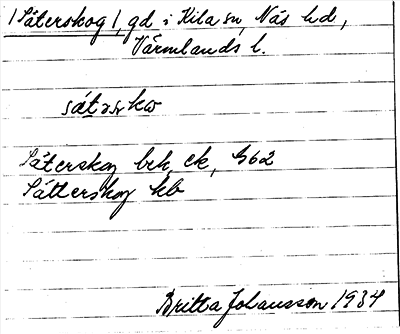 (Säterskog), gd i Kila sn, Näs hd,
Värmlands l.
Säterskog brk, ek, G62
Sätterskog kb
Britta Johansson 1934